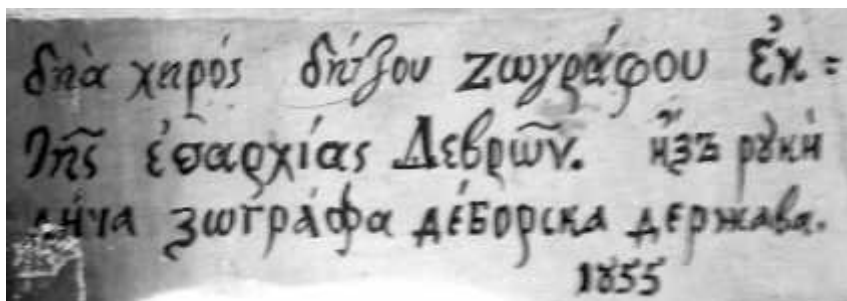 δηὰ χηρός δήτζου ζωγράφου ἐκ =
τῆς ἐπαρχίας Δεβρῶν. ѝзъ рꙋкѝ
ди́ча зѡгра́фа де́борска держава.
1855